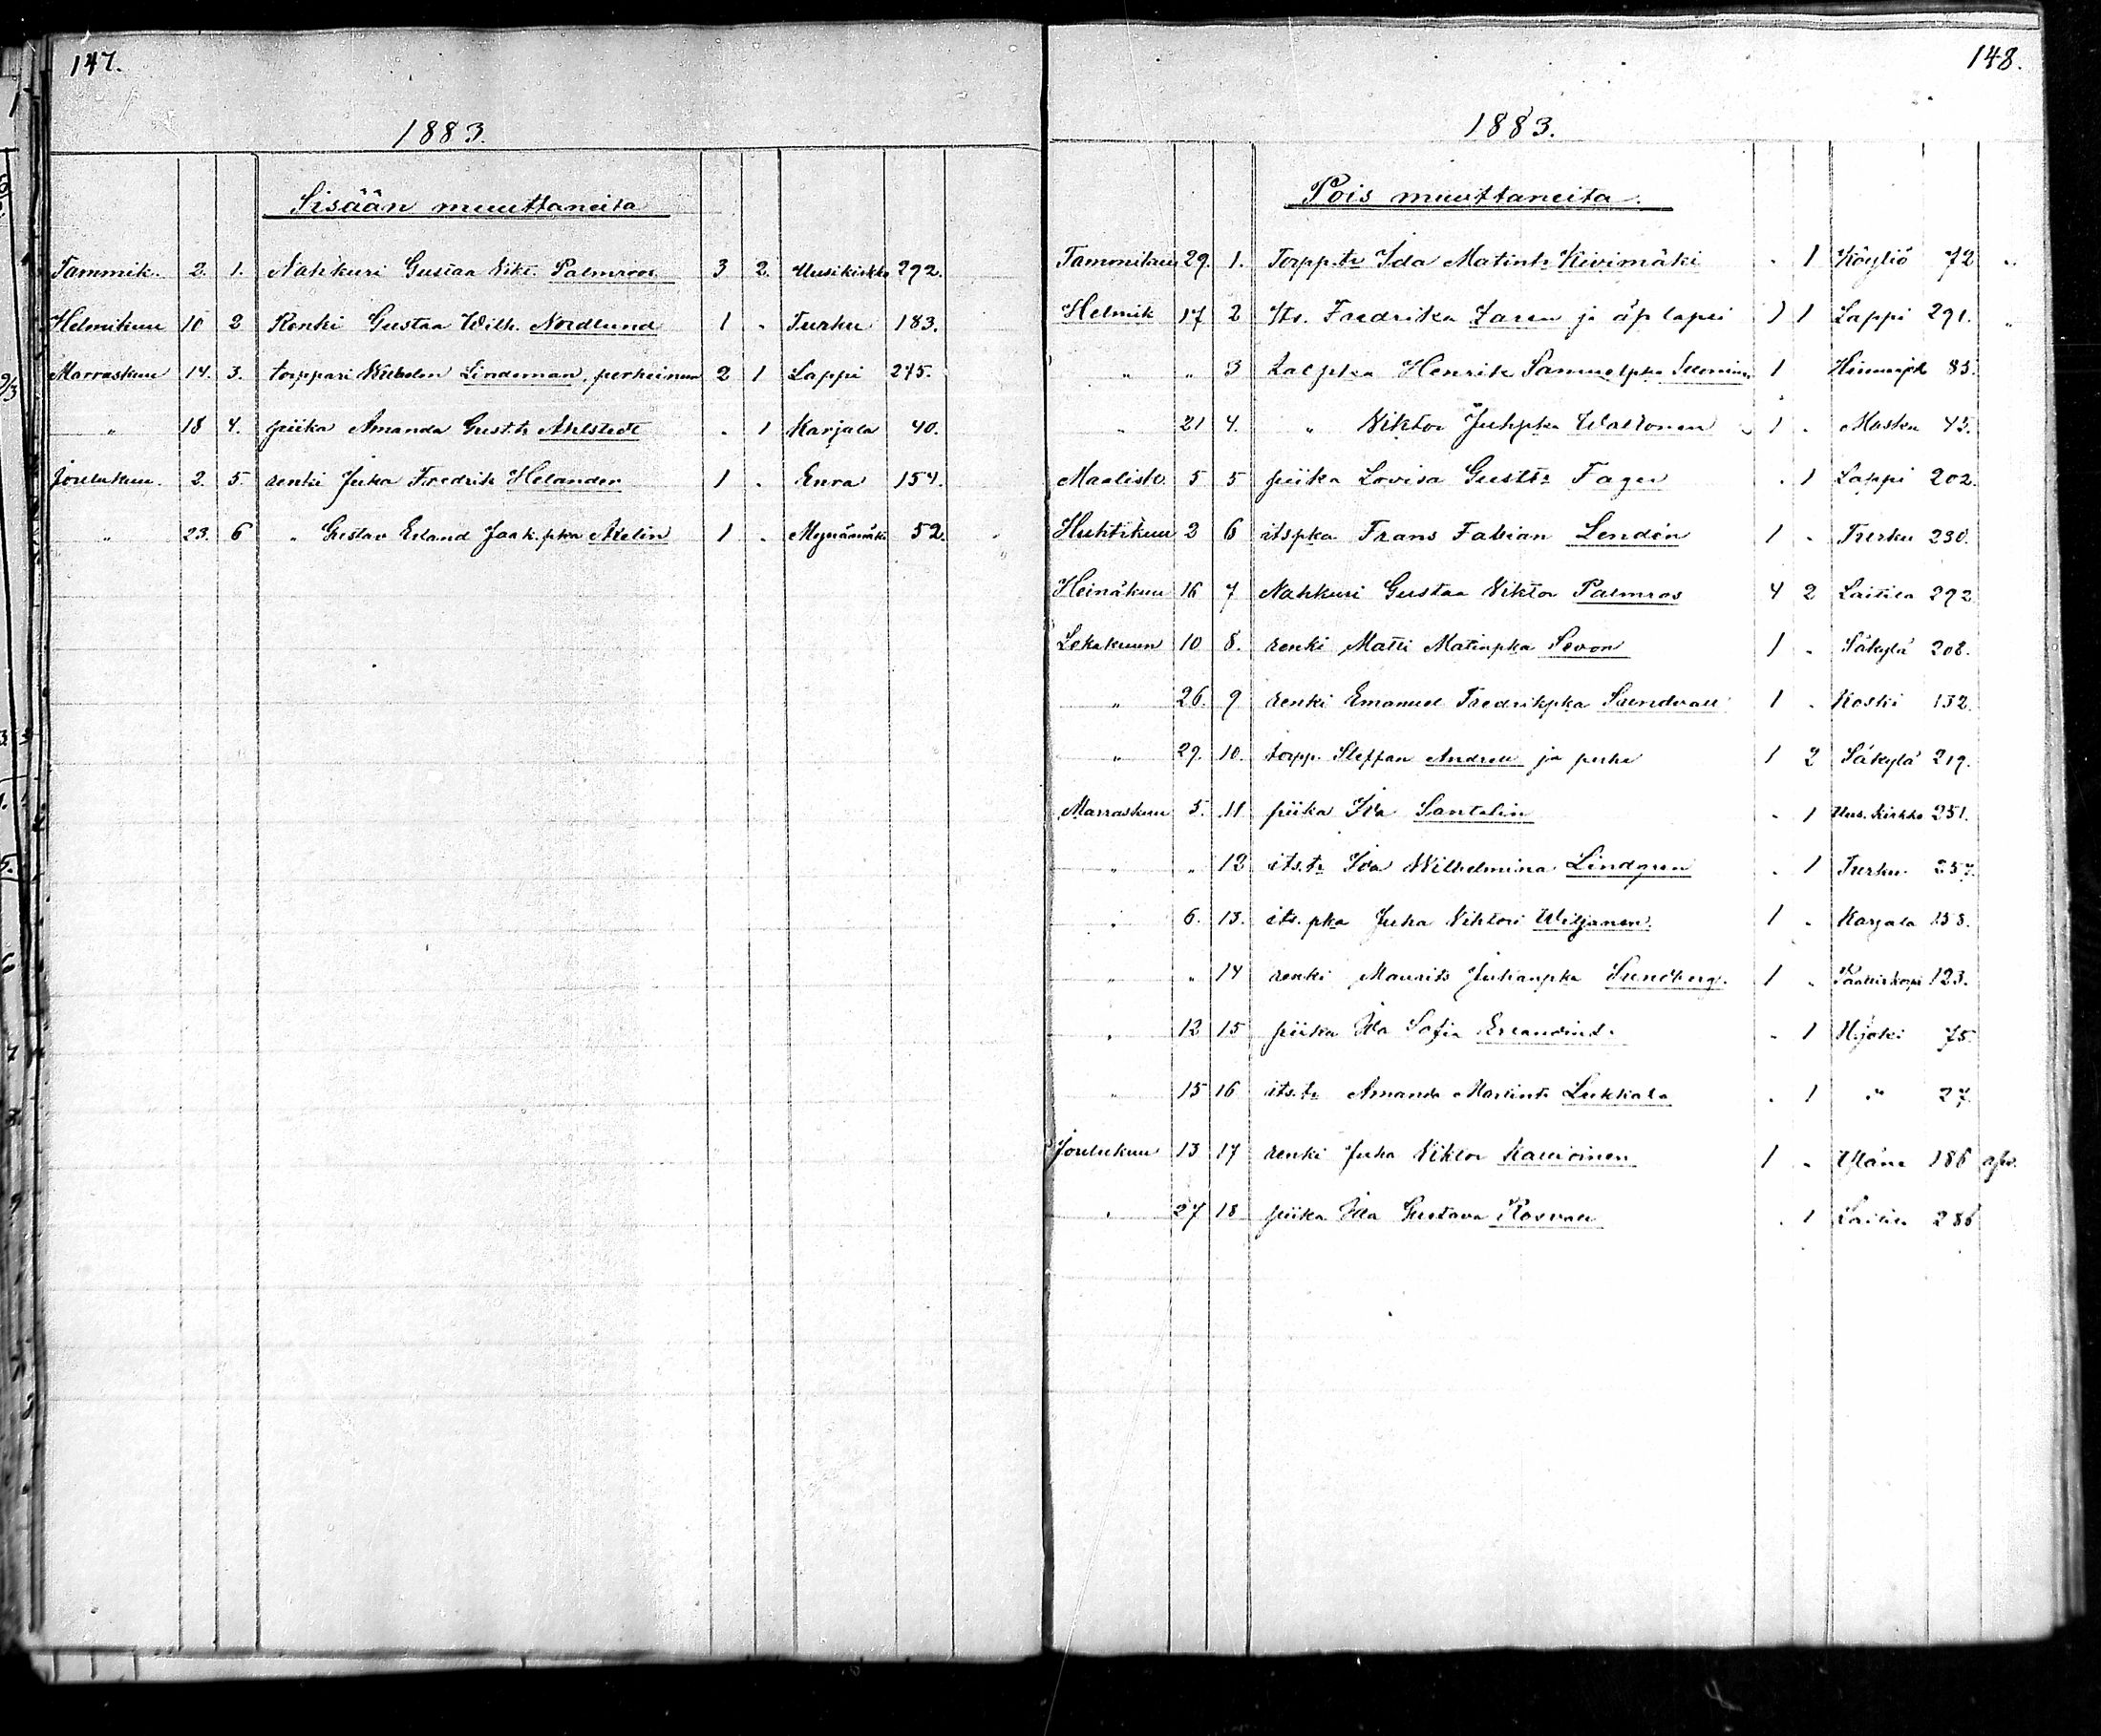 147.
1883.
Sisään muuttaneita
Tammik. 2. 1. Nahkuri Gustaa Vikt. Palmroos 3 2. Uusikirkko 292.
Helmikuu 10 2 Renki Gustaa Wilh. Nordlund 1 " Turku 183.
Marraskuu 14. 3. torppari Wilhelm Lindeman, perheinen 2 1 Lappi 275.
" 18 4. piika Amanda Gust.tr Ahlstedt " 1 Karjala 40.
Joulukuu. 2. 5 renki Juha Fredrik Helander 1 " Eura 154.
" 23. 6 " Gustav Erland Jaak.pka 1 " Mynämäki 52.
148.
1883.
Pois muuttaneita.
Tammikuu 29. 1. Torpp.tr Ida Matintr Kivimäki " 1 Köyliö 72 "
Helmik 17 2 Its. Fredrika ja äp lapsi 1 1 Lappi 291. "
" " 3 talpka Henrik Samuelpka 1 85.
" 21 4. " Viktor Juhpka Waltonen 1 " Masku 45.
Maalisk. 5 5 piika Lovisa Gusttr Fager " 1 Lappi 202.
Huhtikuu 3 6 itspka Frans Fabian Lendén 1 " Turku 230.
Heinäkuu 16 7 Nahkuri Gustaa Viktor Palmros 4 2 Laitila 292
Lokakuun 10 8. renki Matti Matinpka Sevon 1 " Säkylä 208.
" 26. 9 renki Emanuel Fredrikpka Sundvall 1 " Koski 132.
" 29. 10. torpp. Steffan Andell ja perhe 1 2 Säkylä 219.
Marraskuu 5. 11 piika Ida Santalin " 1 Uus.kirkko 251.
" " 12 its.tr Ida Wilhelmina Lindgren " 1 Turku 257.
" 6. 13. its.pka Juha Viktori Wiljanen 1 " Karjala 158.
" " 14 renki Maurits Juhanpka Sundberg. 1 " 123.
" 12 15 piika Ida Sofia Erlandint. " 1 H.joki 75.
" 15 16 its.tr Amanda Lukkala " 1 " 27.
Joulukuu 13 17 renki Juha Viktor Kallioinen 1 " Yläne 186
" 27 18 piika Ida Gustava Rosvall " 1 Laitila 286